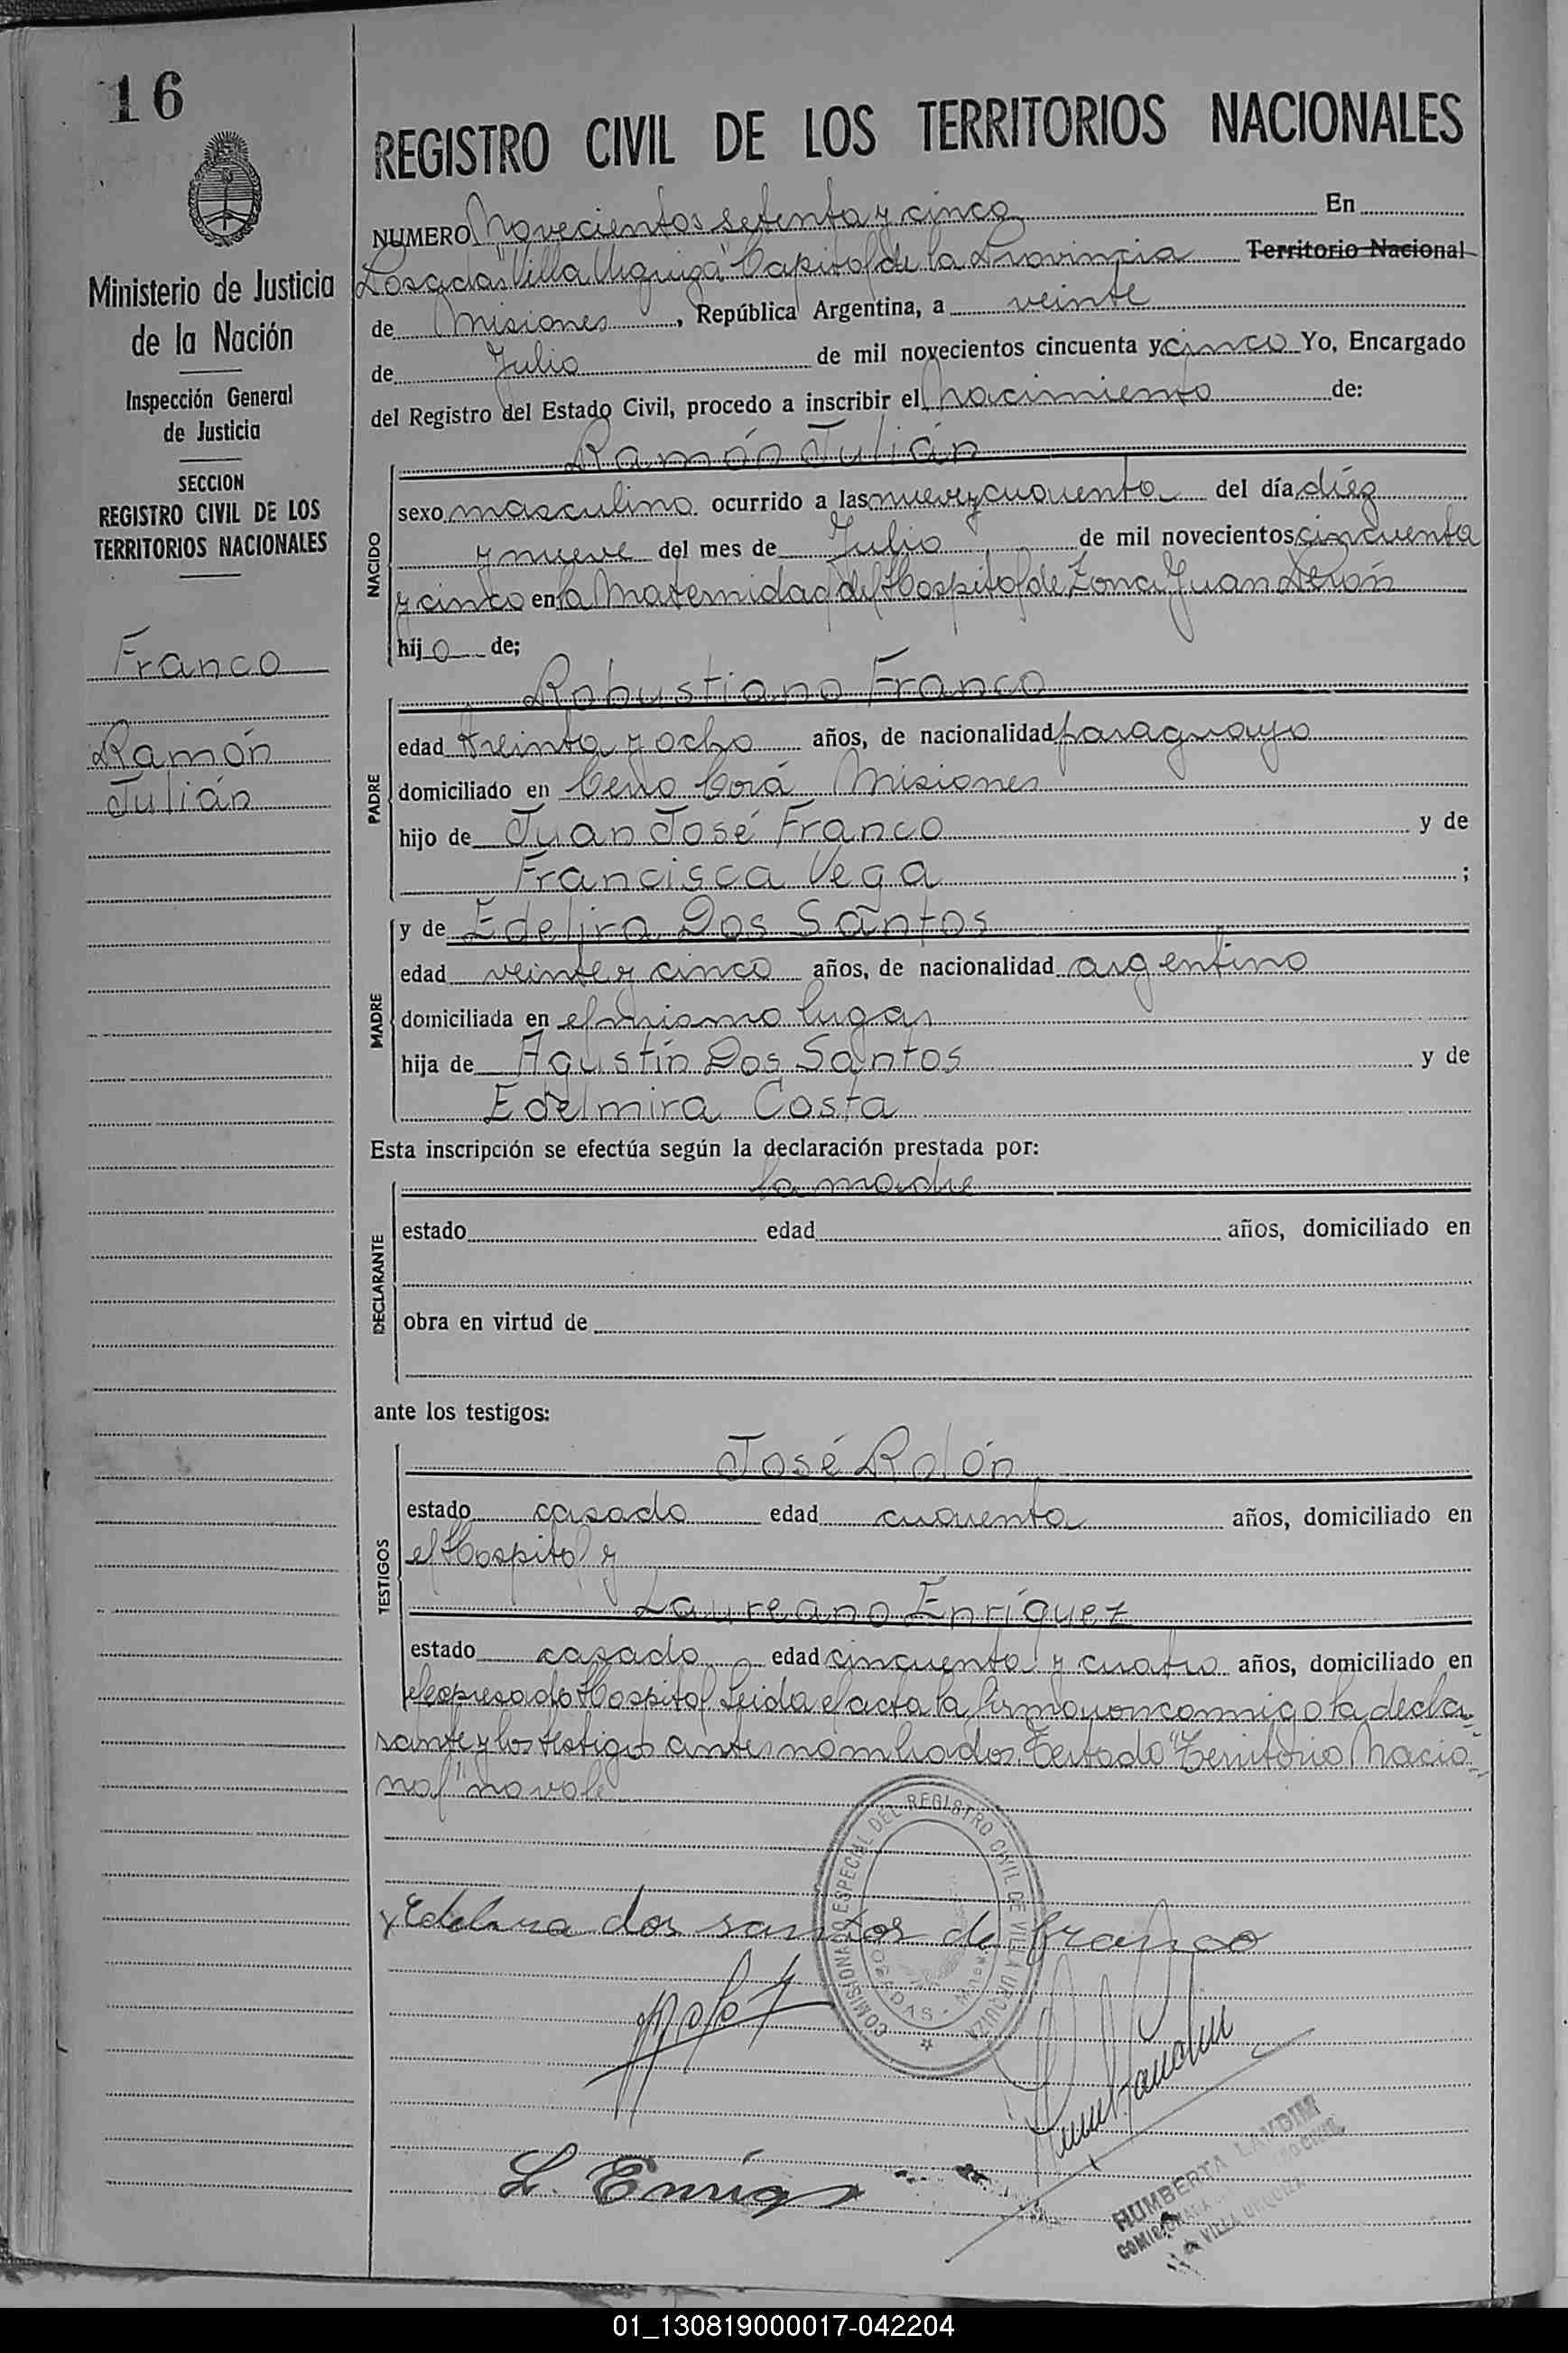 16
REGISTRO CIVIL DE LOS TERRITORIOS NACIONALES
Ministerio de Justicia
de la Nación
Inspección General
de Justicia
SECCION
REGISTRO CIVIL DE LOS
TERRITORIOS NACIONALES
Franco
Ramón
Julián
NUMERO Novecientos setenta y cinco En
Posadas "Villa Urquiza" Capital de la Provincia Territorio Nacional
de Misiones, República Argentina, a veinte
de Julio de mil novecientos cincuenta y cinco Yo, Encargado
del Registro del Estado Civil, procedo a inscribir el nacimiento de:
Ramón Julián
NACIDO
sexo masculino ocurrido a las nueve y cuarenta del día diez
y nueve del mes de Julio de mil novecientos cincuenta
y cinco en la Maternidad del Hospital de Zona Juan Perón
hijo de;
Robustiano Franco
PADRE
edad treinta y ocho años, de nacionalidad paraguayo
domiciliado en Cerro Corá Misiones
hijo de Juan José Franco y de
Francisca Vega ;
MADRE
y de Edelira Dos Santos
edad veinte y cinco años, de nacionalidad argentino
domiciliada en el mismo lugar
hija de Agustín Dos Santos y de
Edelmira Costa
Esta inscripción se efectúa según la declaración prestada por:
la madre
DECLARANTE
estado edad años, domiciliado en
obra en virtud de
ante los testigos:
José Rolón
TESTIGOS
estado casado edad cuarenta años, domiciliado en
el Hospital y
Laureano Enríquez
estado casado edad cincuenta y cuatro años, domiciliado en
el expresado Hospital Leida el acta la firmaron conmigo la decla-
rante y los testigos antes nombrados. Testado "Territorio Nacio-
nal" no vale
COMISIONADO ESPECIAL DEL REGISTRO CIVIL DE VILLA URQUIZA
POSADAS - 
x Edelira dos santos de franco
L. Enríq
HUMBERTA LANDIM
VILLA URQUIZA
01_130819000017-042204